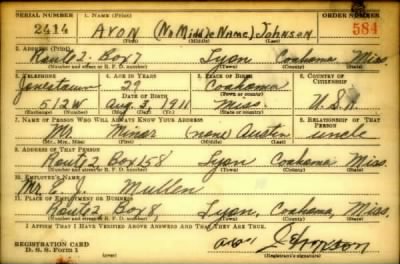 SERIAL NUMBER 1. NAME (Print) ORDER NUMBER
2414 AVON (No Middle Name) Johnson 584
(First) (Middle) (Last)
2. ADDRESS (Print)
Route 2, Box 7 Lyon Coahoma Miss.
(Number and street or R. F. D. number) (Town) (County) (State)
3. TELEPHONE 4. AGE IN YEARS 5. PLACE OF BIRTH 6. COUNTRY OF CITIZENSHIP
Jonestown 29 Coahoma
DATE OF BIRTH
512W Aug. 3, 1911 Miss. U.S.A.
(Exchange) (Number) (Mo.) (Day) (Yr.) (State or country)
7. NAME OF PERSON WHO WILL ALWAYS KNOW YOUR ADDRESS 8. RELATIONSHIP OF THAT PERSON
Mr. (none) Austin uncle
(Mr., Mrs., Miss) (First) (Middle) (Last)
9. ADDRESS OF THAT PERSON
Route 2 Box 158 Lyon Coahoma Miss.
(Number and street or R. F. D. number) (Town) (County) (State)
10. EMPLOYER'S NAME
Mr. Mullen
11. PLACE OF EMPLOYMENT OR BUSINESS
Route 2 Box 8, Lyon, Coahoma, Miss.
(Number and street or R. F. D. number) (Town) (County) (State)
I AFFIRM THAT I HAVE VERIFIED ABOVE ANSWERS AND THAT THEY ARE TRUE.
REGISTRATION CARD
D. S. S. Form 1 (over) Johnson
(Registrant's signature)